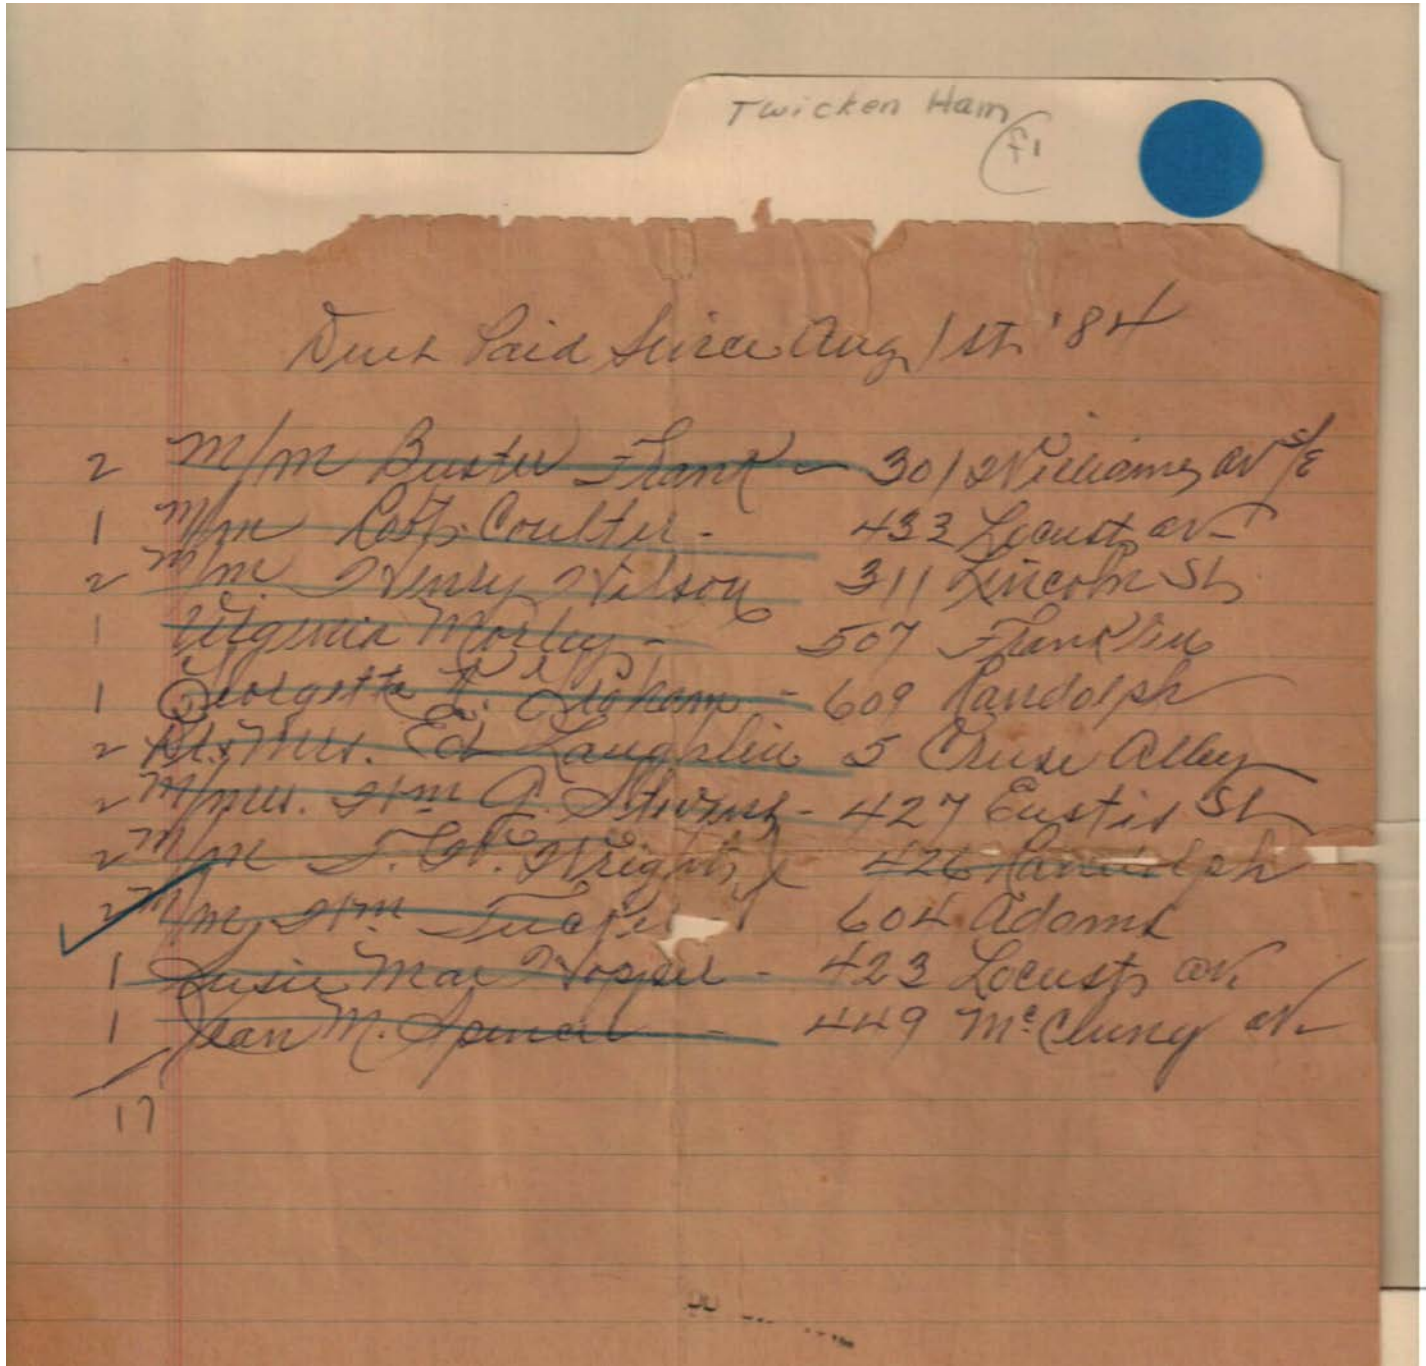 Twicken Ham
f1
Dues Paid Since Aug 1st '84
2 M/M Buster Frank - 301 Williams av S/E
1 M/M Robt. Coulter - 433 Locust av
2 M/M. Henry Wilson 311 Lincoln St
1 Virginia Morley - 507 Franklin
1 Georgetta F. Graham - 609 Randolph
2 Mr. Mrs. Ed Laughlin 5 Cruse Alley
2 M/Mrs. Wm A. Stevens - 427 Eustis St
2 M/M T. W. Wright, 426 Randolph
2 M/M Wm. 604 Adams
1 Susie Mae - 423 Locust av.
1 Jean M. Spencer - 449 McClung av
17